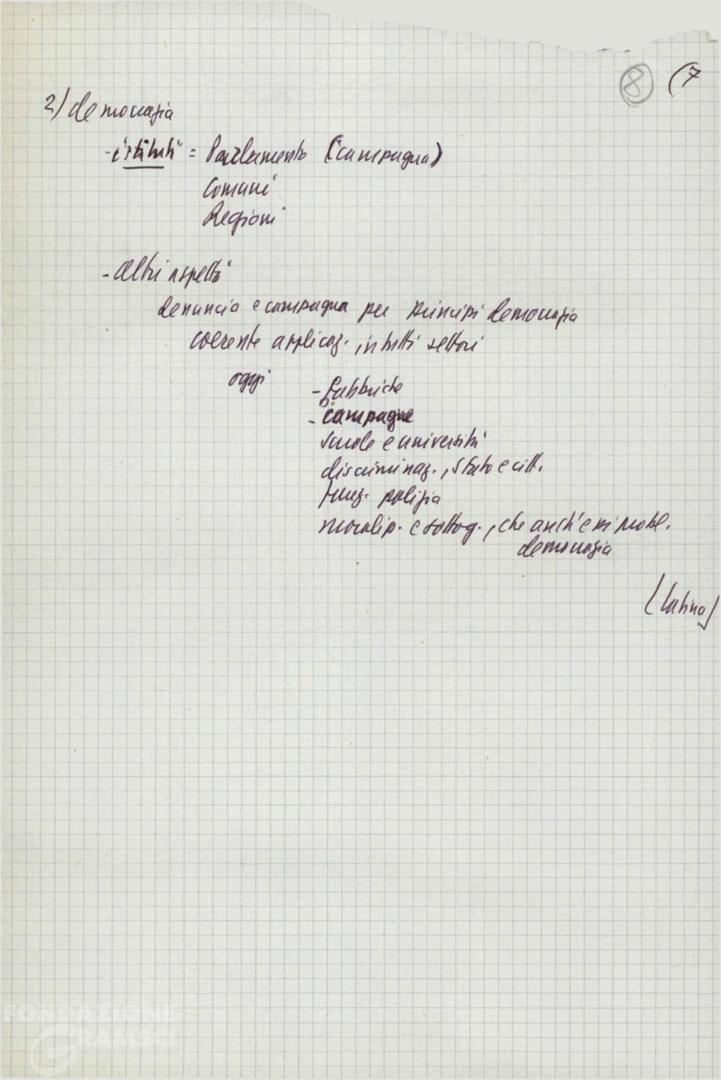 8 (7
2) democrazia
- istituti = Parlamento (campagna)
Comuni
Regioni
- altri aspetti
denuncia e campagna per principi democrazia
coerente applicaz. in tutti settori
oggi
- fabbriche
- campagne
scuole e università
discriminaz., Stato e citt.
funz. polizia
moralizz. e sottog., che anch'è probl.
democrazia
(Latina)
FONDAZIONE
GRAMSCI